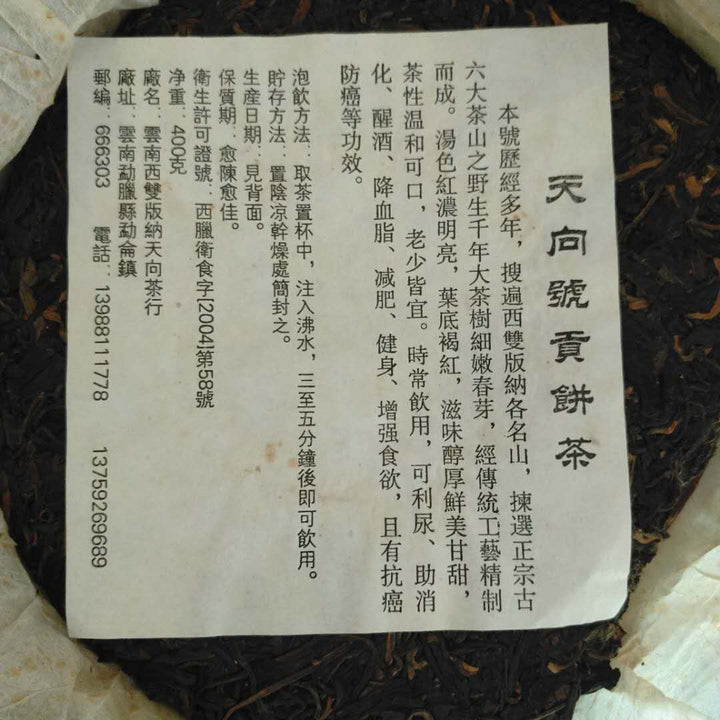 天向號貢餅茶
本號歷經多年，搜遍西雙版納各名山，揀選正宗古
六大茶山之野生千年大茶樹細嫩春芽，經傳統工藝精制
而成。湯色紅濃明亮，葉底褐紅，滋味醇厚鮮美甘甜，
茶性温和可口，老少皆宜。時常飲用，可利尿、助消
化、醒酒、降血脂、减肥、健身、增强食欲，且有抗癌
防癌等功效。
泡飲方法：取茶置杯中，注入沸水，三至五分鐘後即可飲用。
貯存方法：置陰凉幹燥處簡封之。
生産日期：見背面。
保質期：愈陳愈佳。
衛生許可證號：西臘衛食字[2004]第58號
净重：400克
廠名：雲南西雙版納天向茶行
廠址：雲南勐臘縣勐侖鎮
郵編：666303 電話：13988111778 13759269689